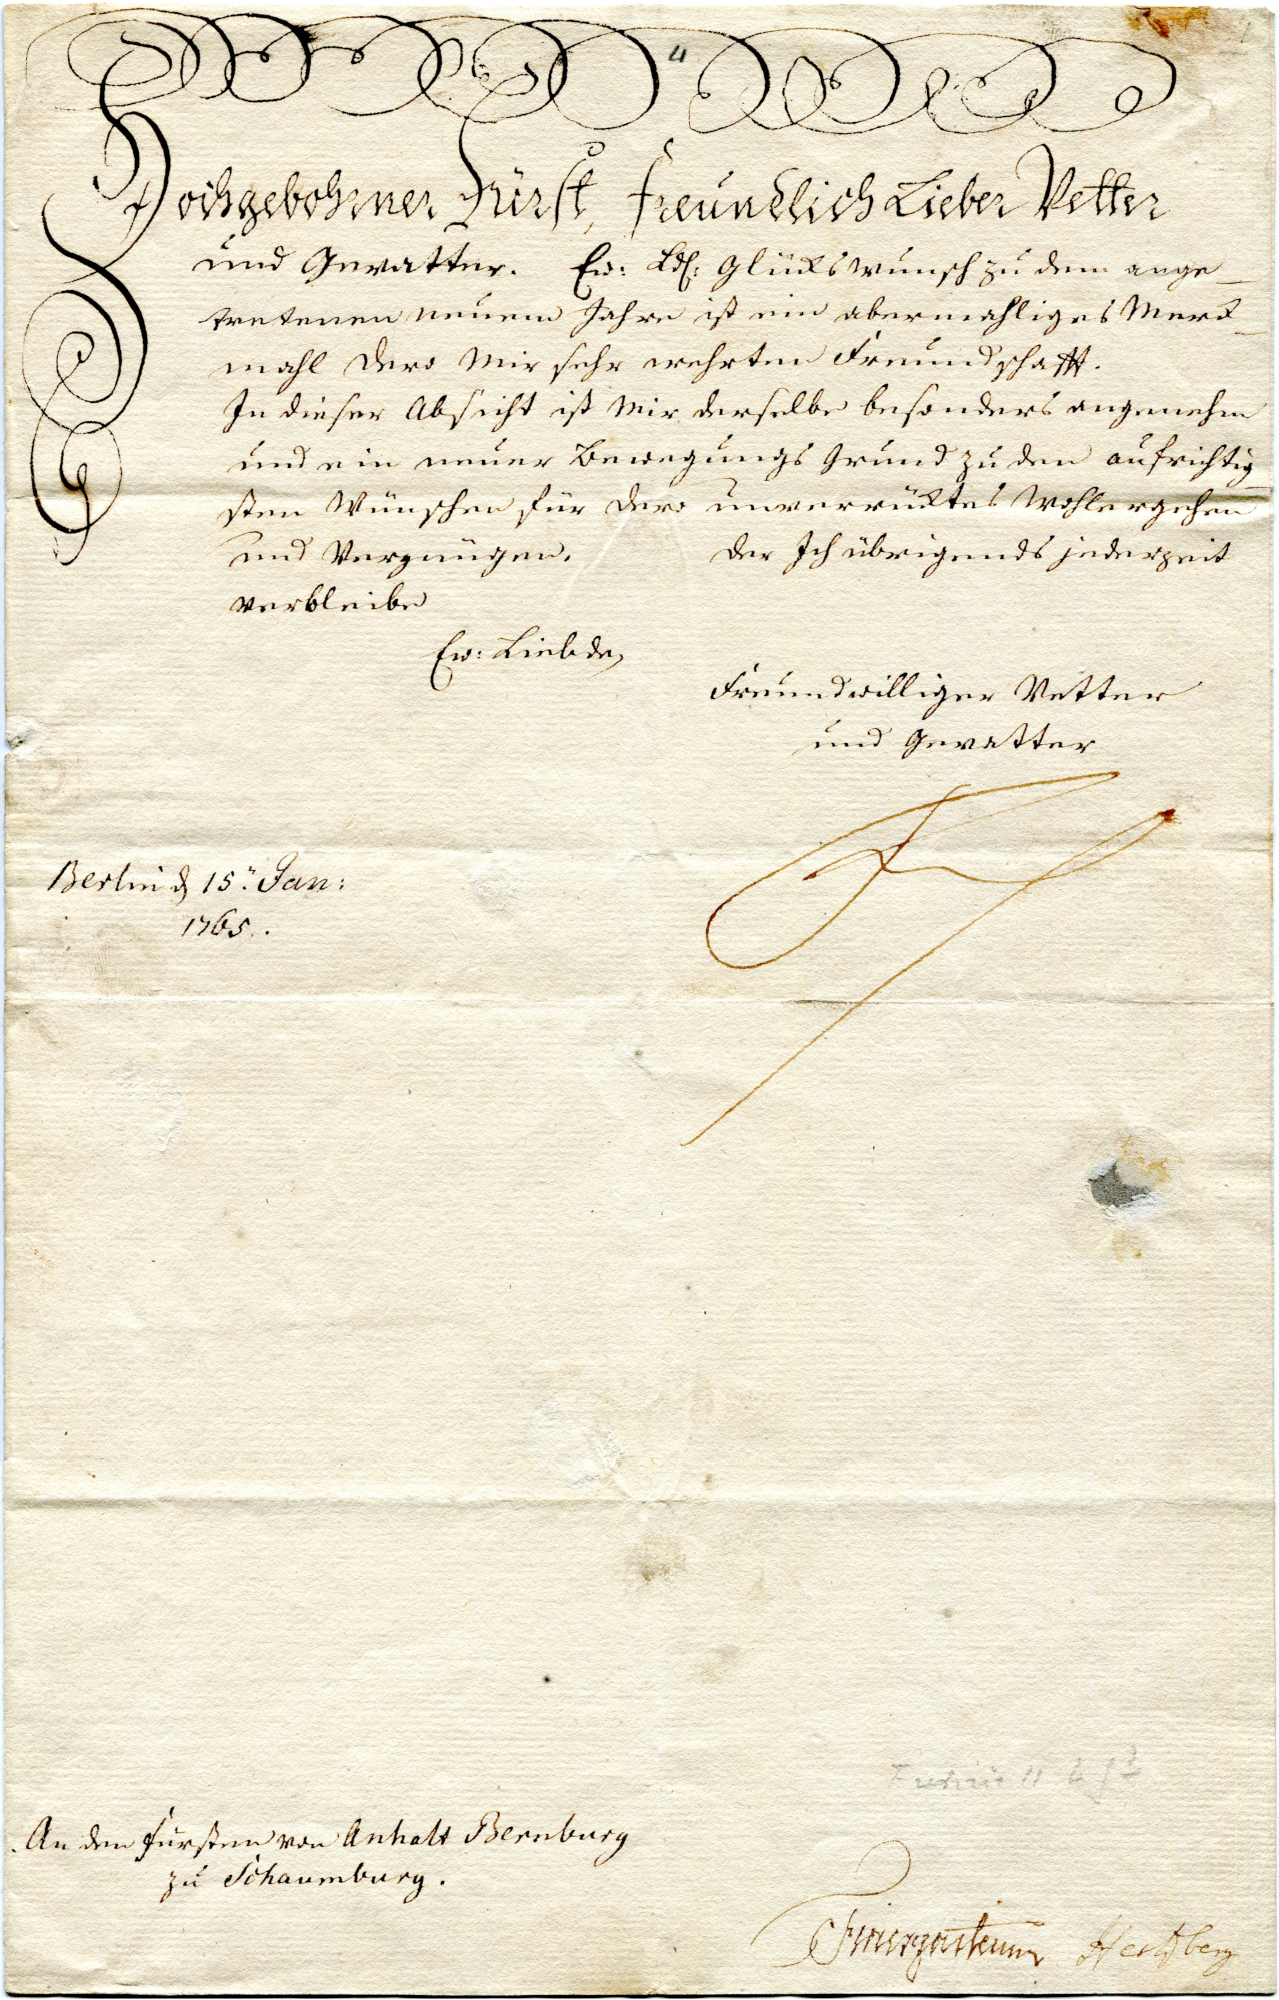 Hochgebohrner Fürst, Freundlich Lieber Vetter
und Gevatter. Ew: Ld: Glückswunsch zu dem ange-
tretenen neuem Jahre ist ein abermahliges Merck-
mahl Dero Mir sehr wehrten Freundschafft.
In dieser Absicht ist Mir derselbe besonders angenehm
und ein neuer Bewegungs Grund zu den aufrichtig-
sten Wünschen für Dero unverrücktes Wohlergehen
und Vergnügen. Der Ich übrigends jederzeit
verbleibe
Ew: Liebde,
Freundwilliger Vetter
und Gevatter
Berlin d 15.ⁿ Jan:
1765.
An den Fürsten von Anhalt Bernburg
zu Schaumburg.
Finckenstein Hertzberg